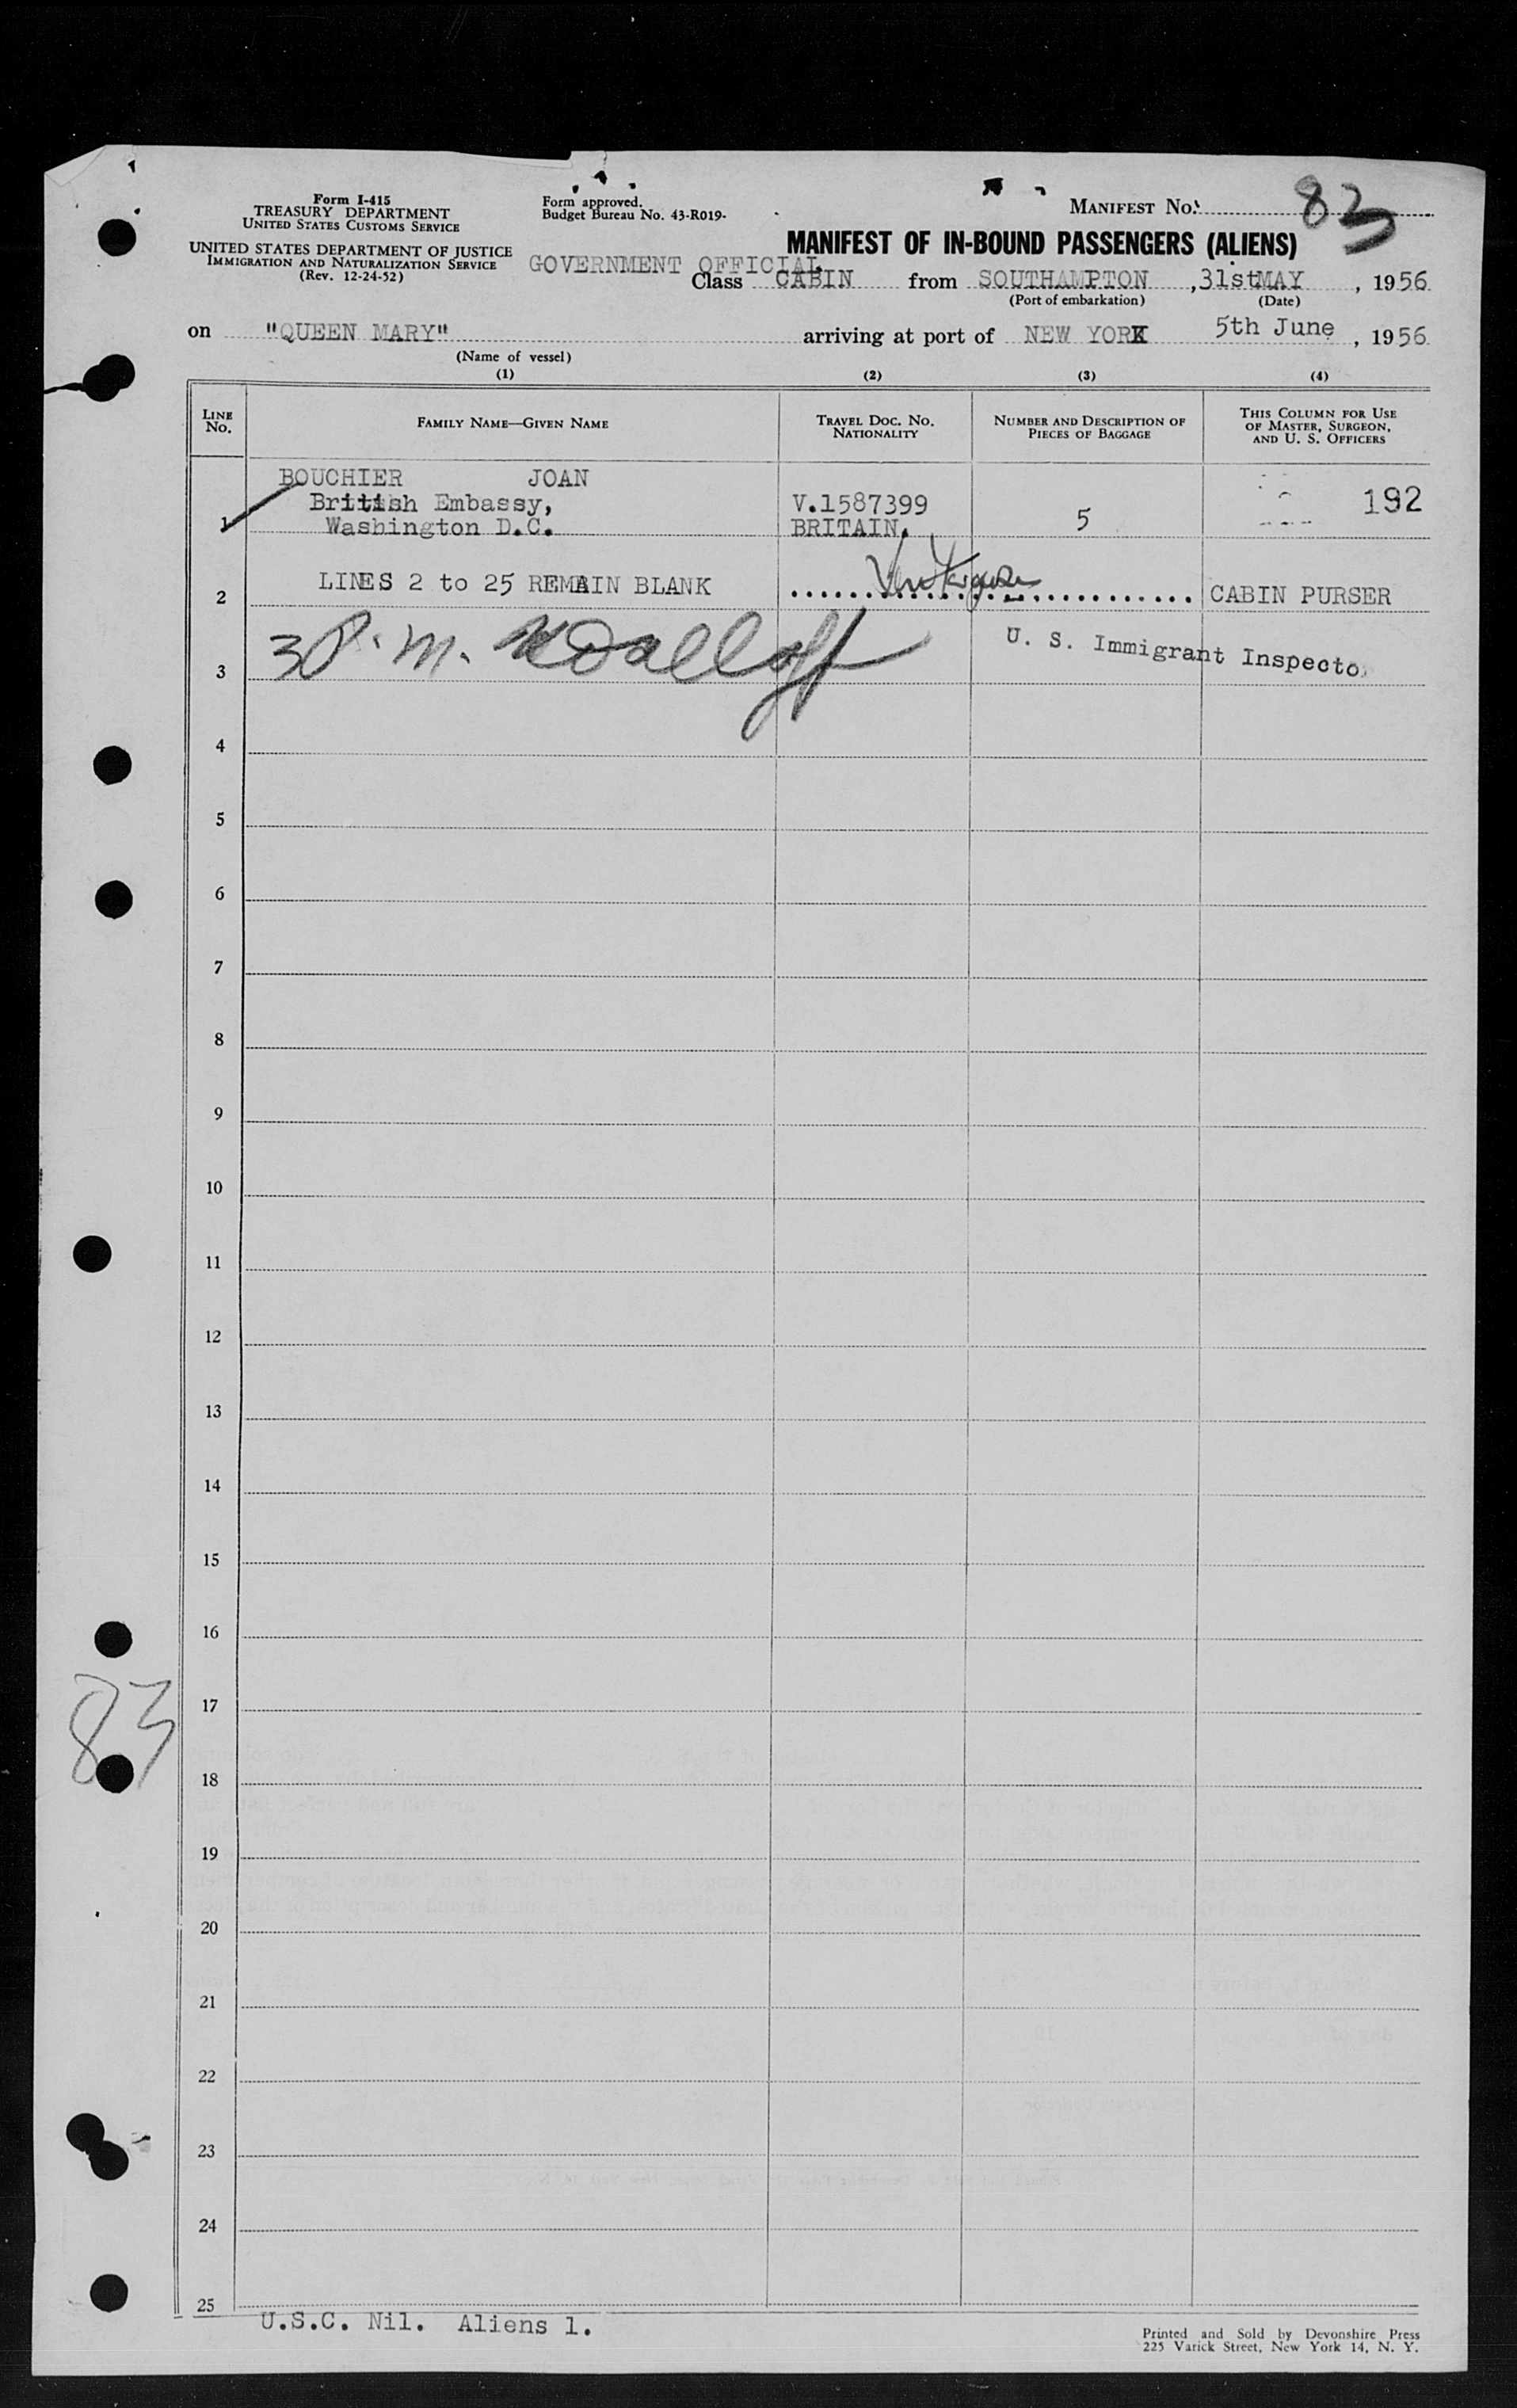 Form I-415
TREASURY DEPARTMENT
UNITED STATES CUSTOMS SERVICE
UNITED STATES DEPARTMENT OF JUSTICE
IMMIGRATION AND NATURALIZATION SERVICE
(Rev. 12-24-52)
Form approved.
Budget Bureau No. 43-R019-
MANIFEST No. 83
MANIFEST OF IN-BOUND PASSENGERS (ALIENS)
GOVERNMENT OFFICIAL
Class CABIN from SOUTHAMPTON, 31st MAY, 1956
(Port of embarkation) (Date)
on "QUEEN MARY" arriving at port of NEW YORK 5th June, 1956
(Name of vessel)
(1) (2) (3) (4)
LINE No. FAMILY NAME—GIVEN NAME TRAVEL DOC. No. NATIONALITY NUMBER AND DESCRIPTION OF PIECES OF BAGGAGE THIS COLUMN FOR USE OF MASTER, SURGEON, AND U. S. OFFICERS
BOUCHIER JOAN
British Embassy, V.1587399 192
1 Washington D.C. BRITAIN. 5
2 LINES 2 to 25 REMAIN BLANK CABIN PURSER
3 3 P.m. U. S. Immigrant Inspecto
4
5
6
7
8
9
10
11
12
13
14
15
16
17
83
18
19
20
21
22
23
24
25
U.S.C. Nil. Aliens 1.
Printed and Sold by Devonshire Press
225 Varick Street, New York 14, N. Y.